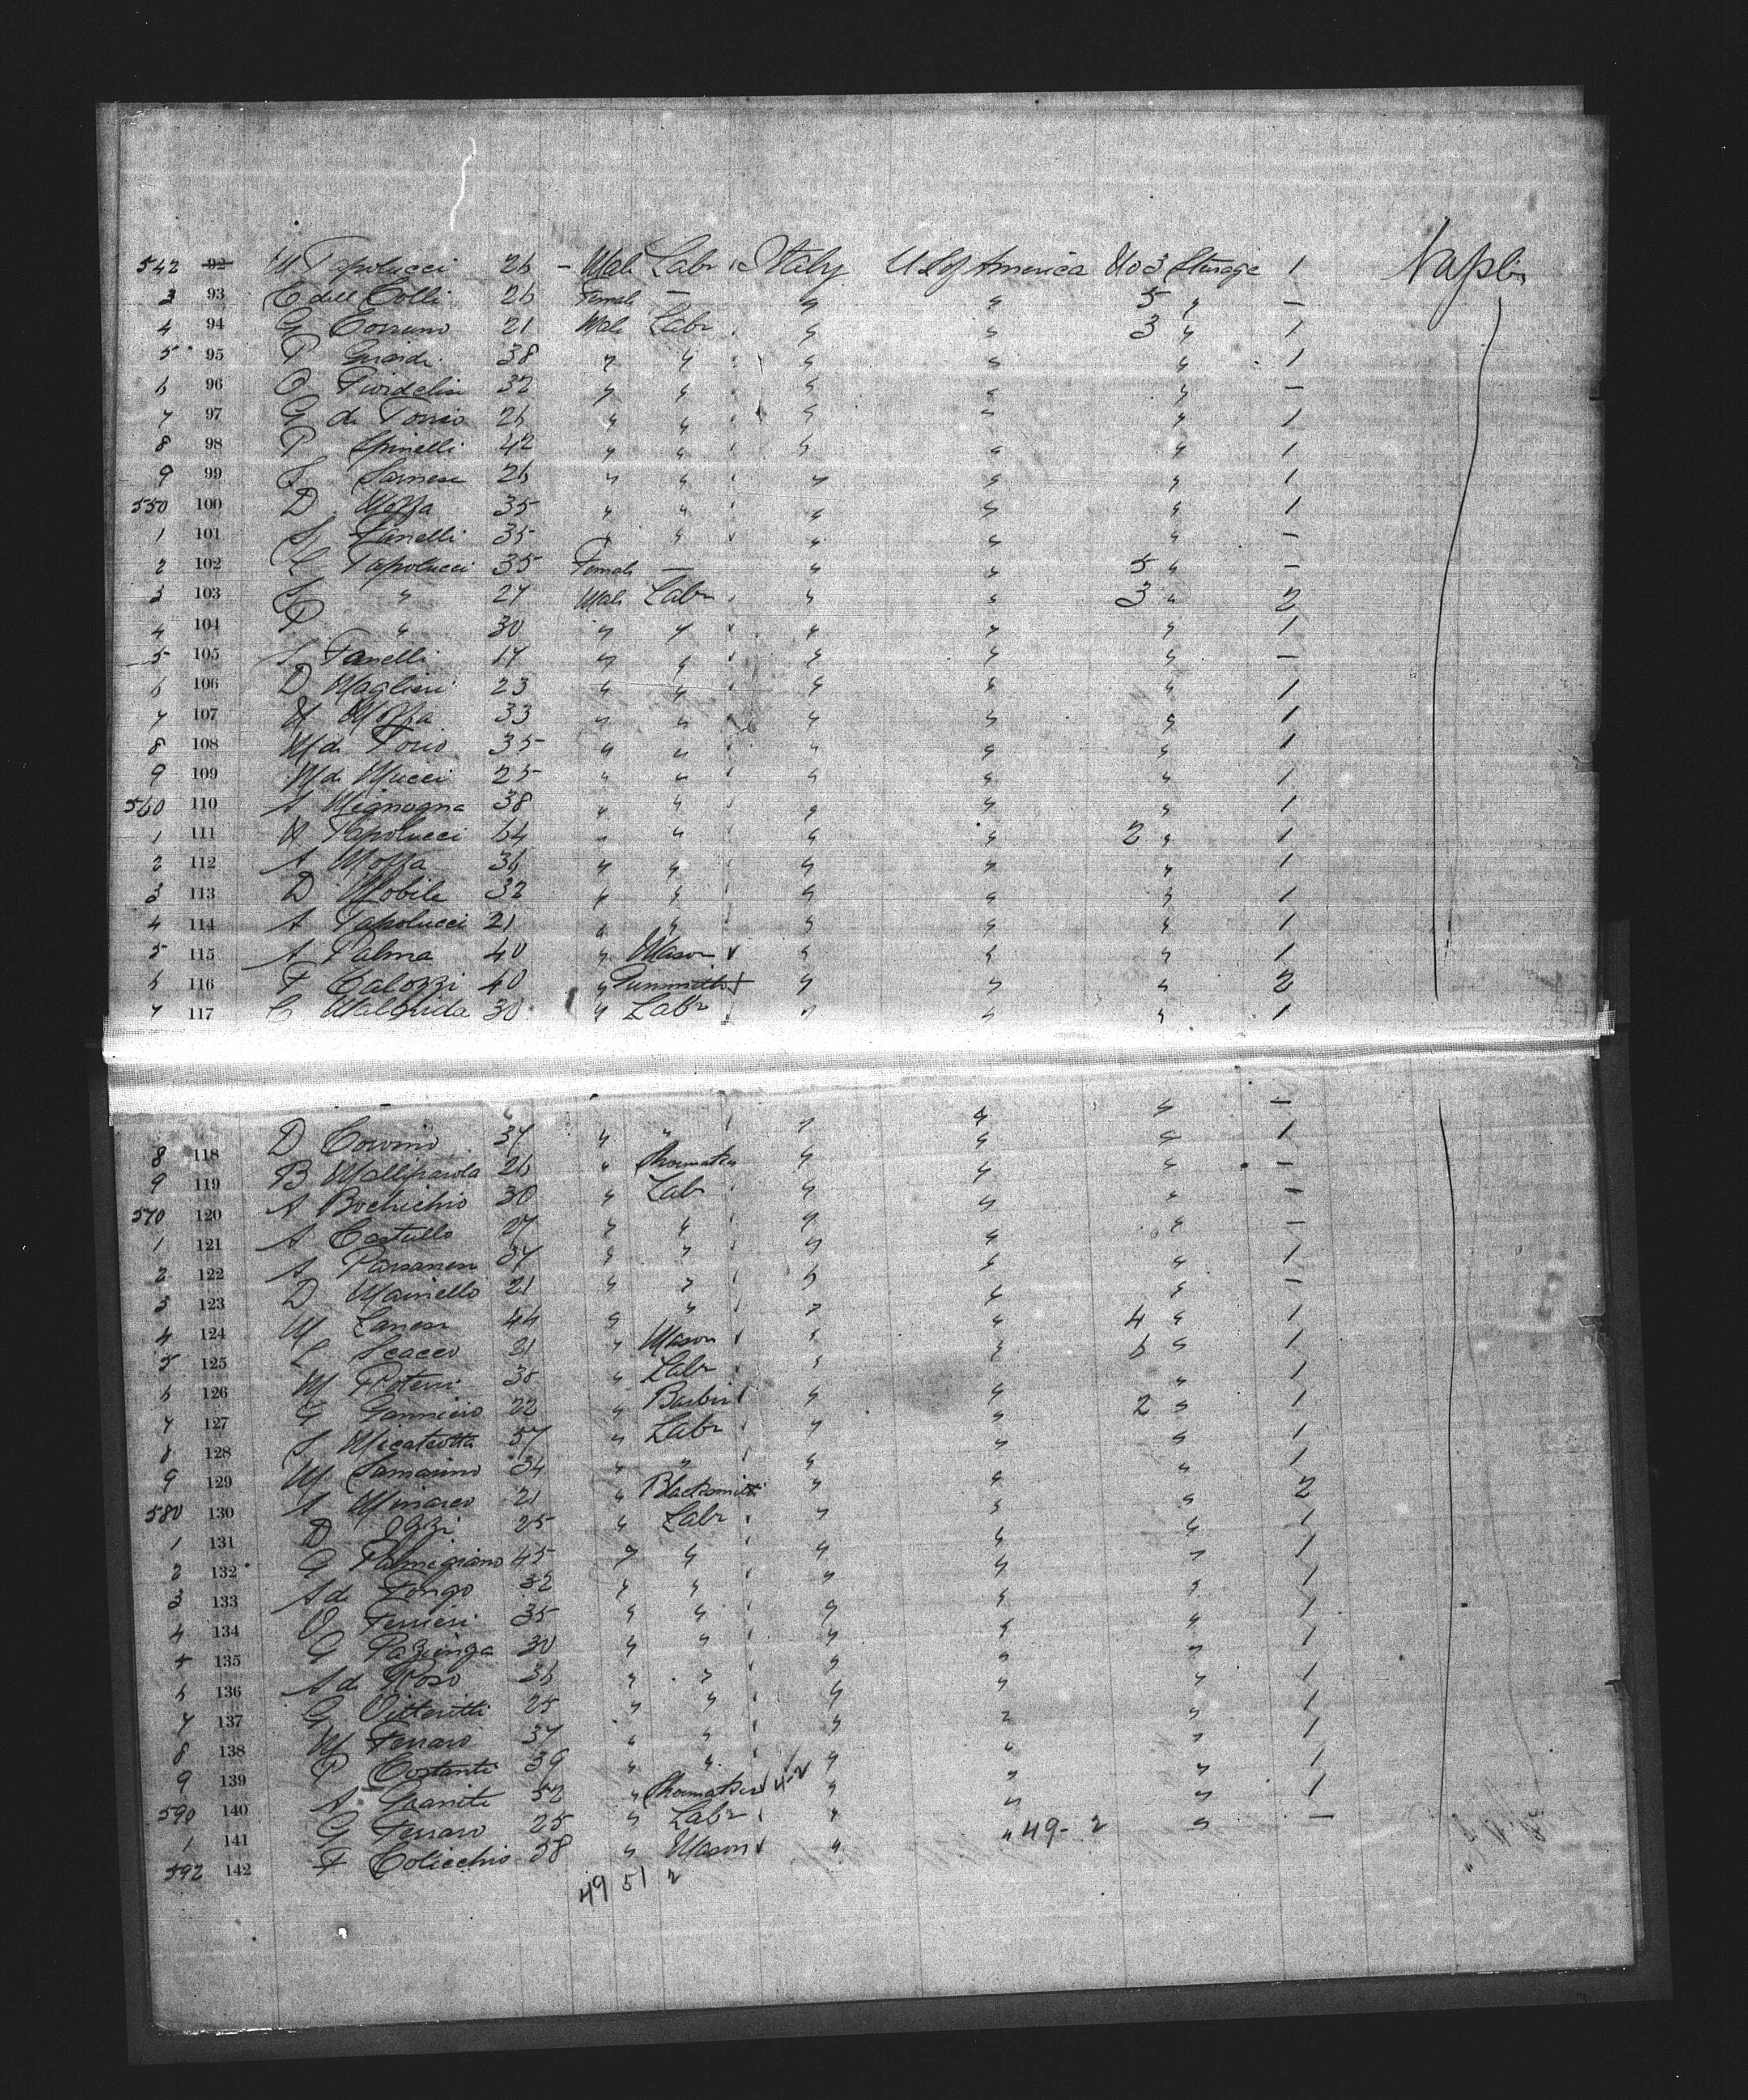 542 92 M Tapolucci 26 - Male Labr Italy U S of America No 3 Steerage 1 Naples
3 93 C dell Colli 26 Female — " " 5 " —
4 94 G Corruno 21 Male Labr " " 3 " 1
5 95 P Girardi 38 " " " " " 1
6 96 O 32 " " " " " —
7 97 G di Torrio 26 " " " " " 1
8 98 P Spinelli 42 " " " " " 1
9 99 S Sarnese 26 " " " " " 1
550 100 D Mozza 35 " " " " " 1
1 101 S Fanelli 35 " " " " " —
2 102 C Tapolucci 35 Female — " " 5 " —
3 103 S " 27 Male Labr " " 3 " 2
4 104 P " 30 " " " " " 1
5 105 S Fanelli 17 " " " " " —
6 106 D Maglieri 23 " " " " " 1
7 107 N Mozza 33 " " " " " 1
8 108 M di Iorio 35 " " " " " 1
9 109 M di Mucci 25 " " " " " 1
560 110 A Mignogna 38 " " " " " 1
1 111 N Tapolucci 64 " " " " 2 " 1
2 112 A Mozza 36 " " " " " 1
3 113 D Nobile 32 " " " " " 1
4 114 A Tapolucci 21 " " " " " 1
5 115 A Palma 40 " Mason " " " 1
6 116 F Calozzi 40 " Gunsmith " " " 2
7 117 C 30 " Labr " " " 1
8 118 D Corvino 37 " " " " " —
9 119 B 26 " " " " 1
570 120 A Bochichio 30 " Labr " " " —
1 121 A Castullo 27 " " " " " —
2 122 A 37 " " " " " —
3 123 D Mainello 21 " " " " " 1
4 124 M Lanese 44 " " " " " —
5 125 L Scacco 21 " Mason " " 4 " 1
6 126 M Poterri 38 " Labr " " 6 " 1
7 127 G Gannicio 22 " Barber " " " 1
8 128 S Micatrotta 57 " Labr " " 2 " 1
9 129 M Samarino 34 " " " " " 1
580 130 A Minarco 21 " Blacksmith " " " 1
1 131 D Izzi 25 " Labr " " " 2
2 132 G Palmigiano 45 " " " " " 1
3 133 A di Longo 32 " " " " " 1
4 134 O Ferrieri 35 " " " " " 1
5 135 G Pazienza 30 " " " " " 1
6 136 A di Roso 36 " " " " " 1
7 137 G Vitteritti 25 " " " " " 1
8 138 M Ferraro 37 " " " " " 1
9 139 P Costanti 39 " " " " " 1
590 140 A Graniti 52 " 4-2 " " " 1
1 141 G Ferraro 25 " Labr " " " 1
592 142 F Colicchio 38 " Mason " " 49- 2 " —
49 51 2